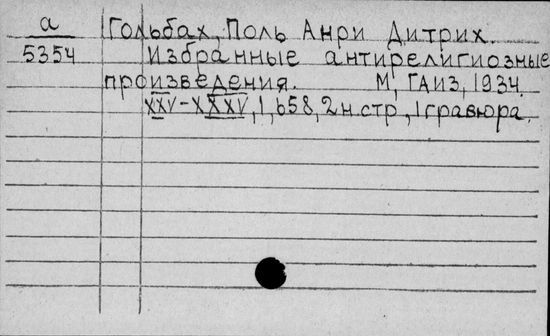 а
5354
Гольбах, Поль Анри Дитрих.
Избранные антирелигиозные
произведения. М, ГАИЗ, 1934.
XXV-XXXV, 1, 658, 2 н.стр., 1 гравюра.